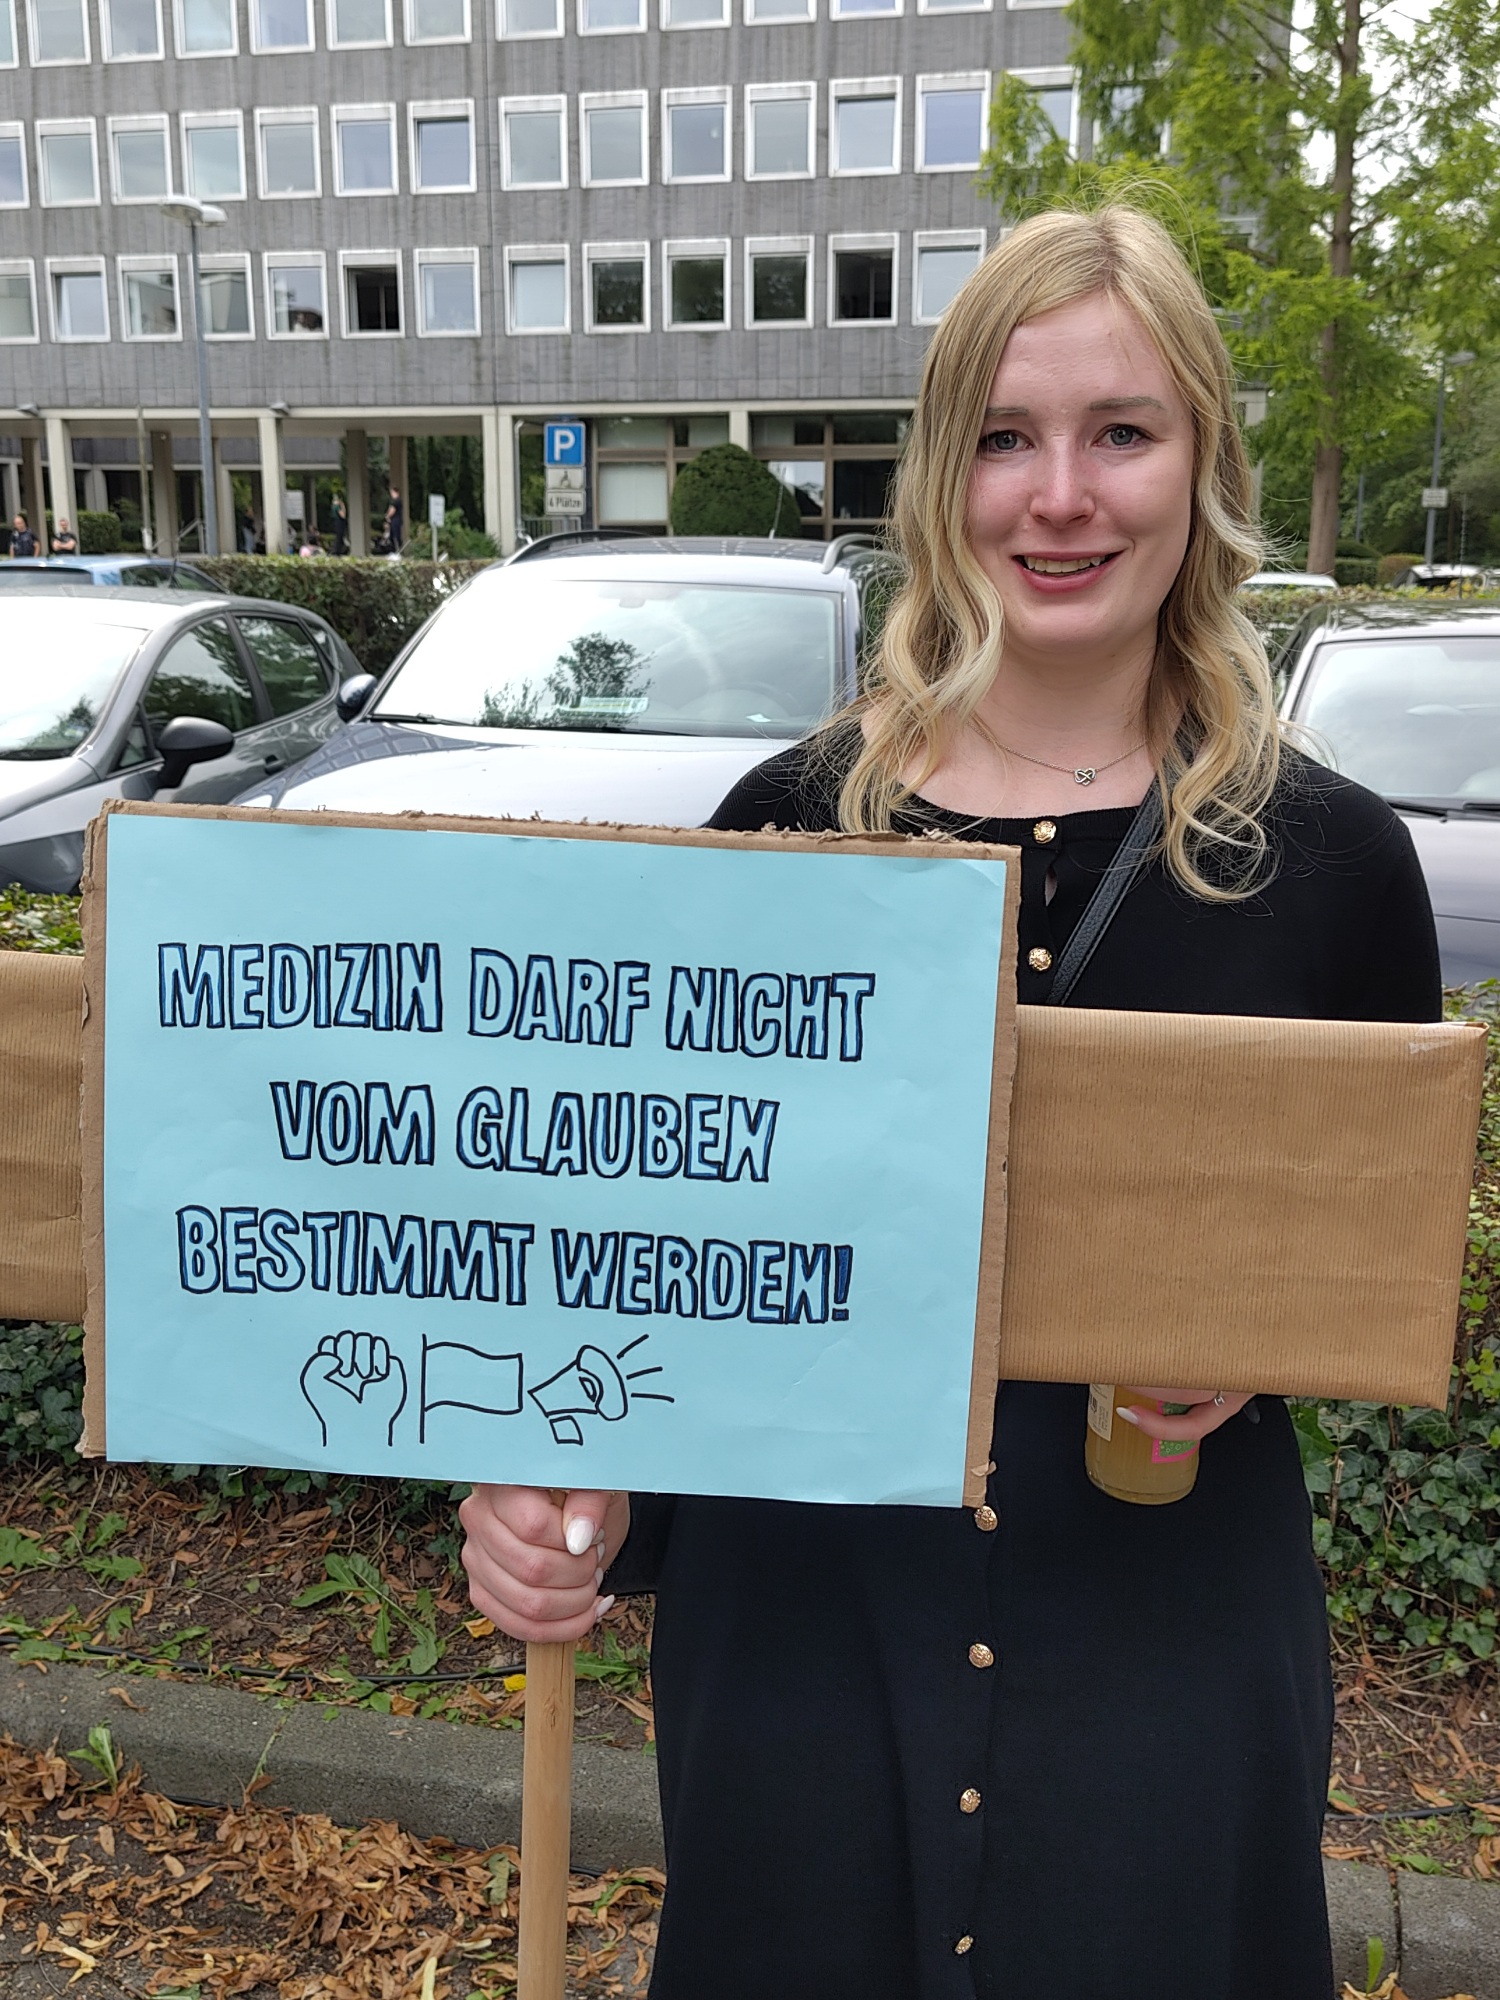 P
4 Plätze
MEDIZIN DARF NICHT
VOM GLAUBEN
BESTIMMT WERDEN!